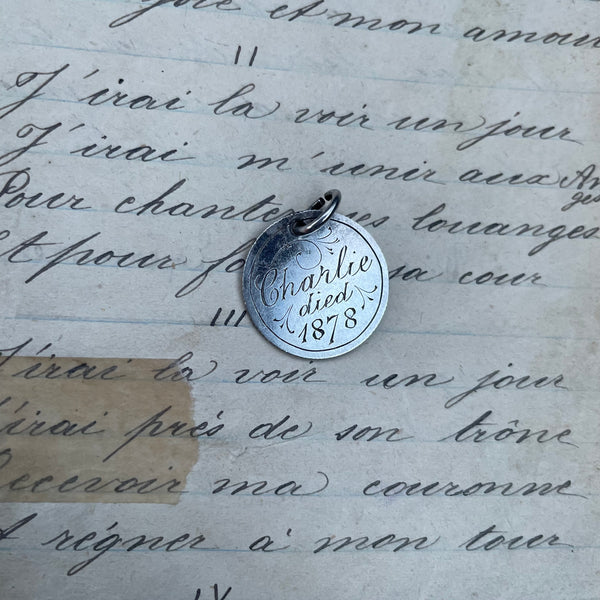 joie et mon amour
II
J'irai la voir un jour
J'irai m'unir aux An
ges
Pour chanter ses louanges
Et pour fa sa cour
Charlie
died
1878
III
J'irai la voir un jour
J'irai près de son trône
Recevoir ma couronne
Et régner à mon tour
IV